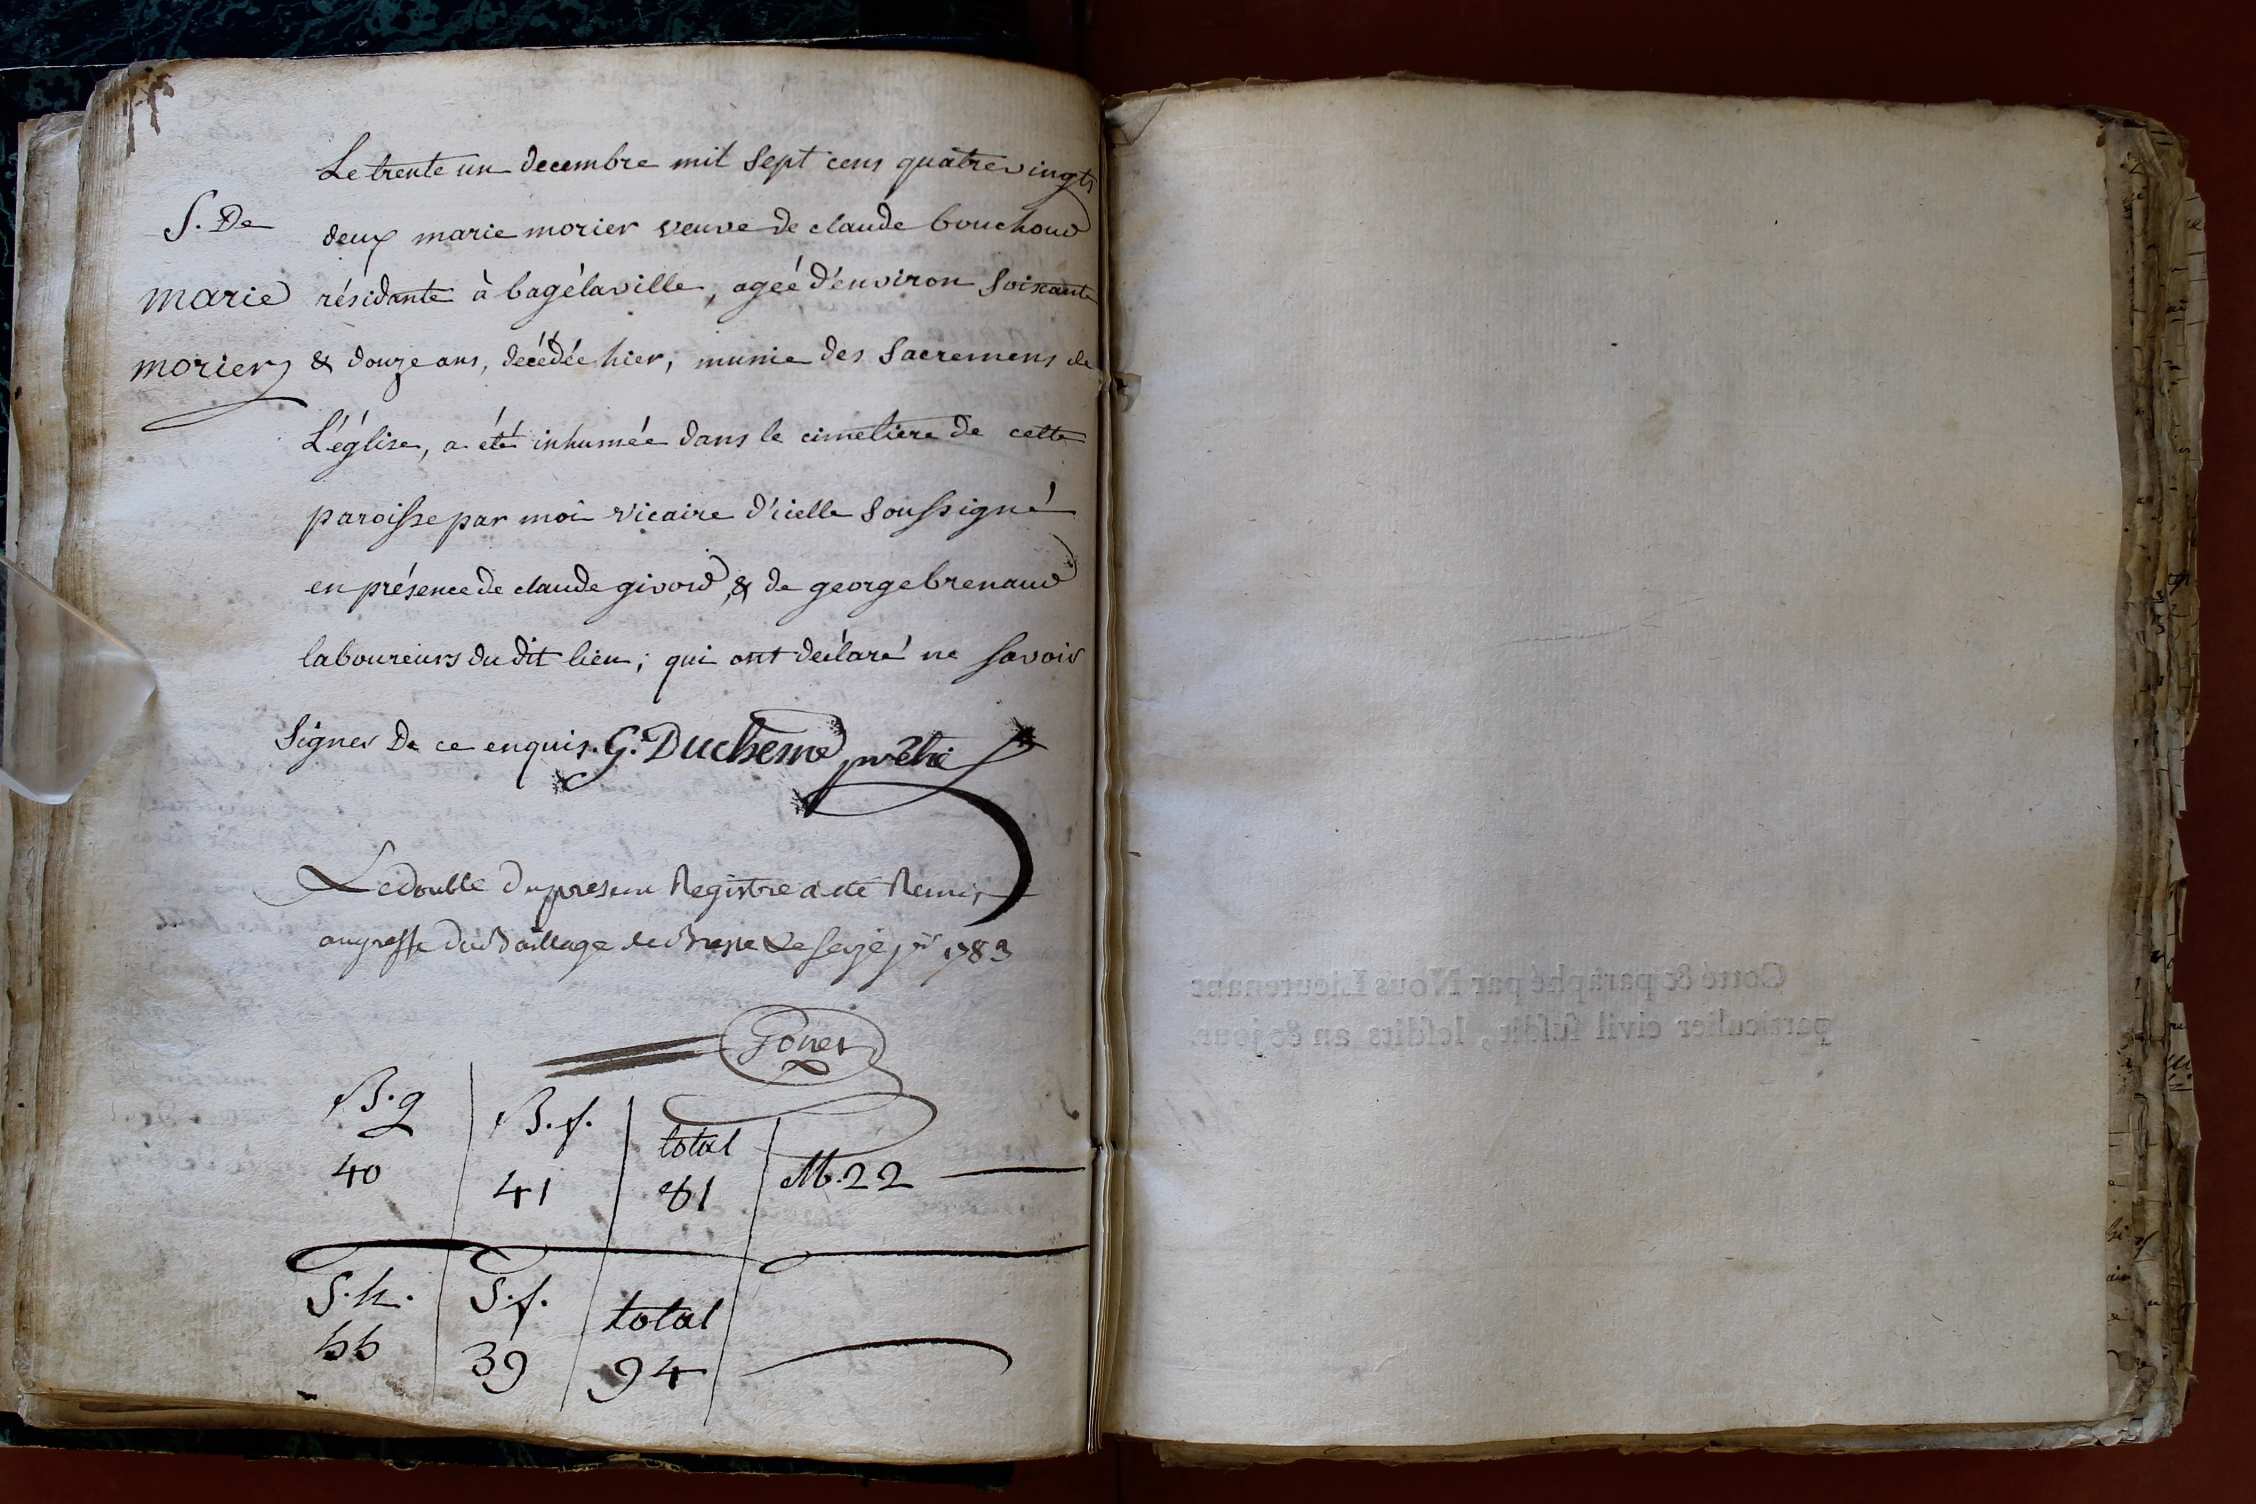 S. De
marie
morier
Le trente un decembre mil sept cens quatrevingts
deux marie morier veuve de claude bouchoud
résidante à bagélaville, ageé d'environ soixante
& douze ans, décédée hier, munie des sacremens de
L'église, a été inhumée dans le cimetiere de cette
paroisse par moi vicaire d'icelle soussigné
en présence de claude givord, & de george brenaud
laboureurs du dit lieu; qui ont déclaré ne savoir
signer De ce enquis. G. Duchesne prêtre
Le double du present Registre a été Remis
au greffe du Baillage de Bresse Le seize jer 1783
B. g
40
B. f.
41
total
81
M. 22
S. h.
55
S. f.
39
total
94
Cotté & paraphé par Nous Lieutenant
particulier civil susdit, lesdits an & jour.